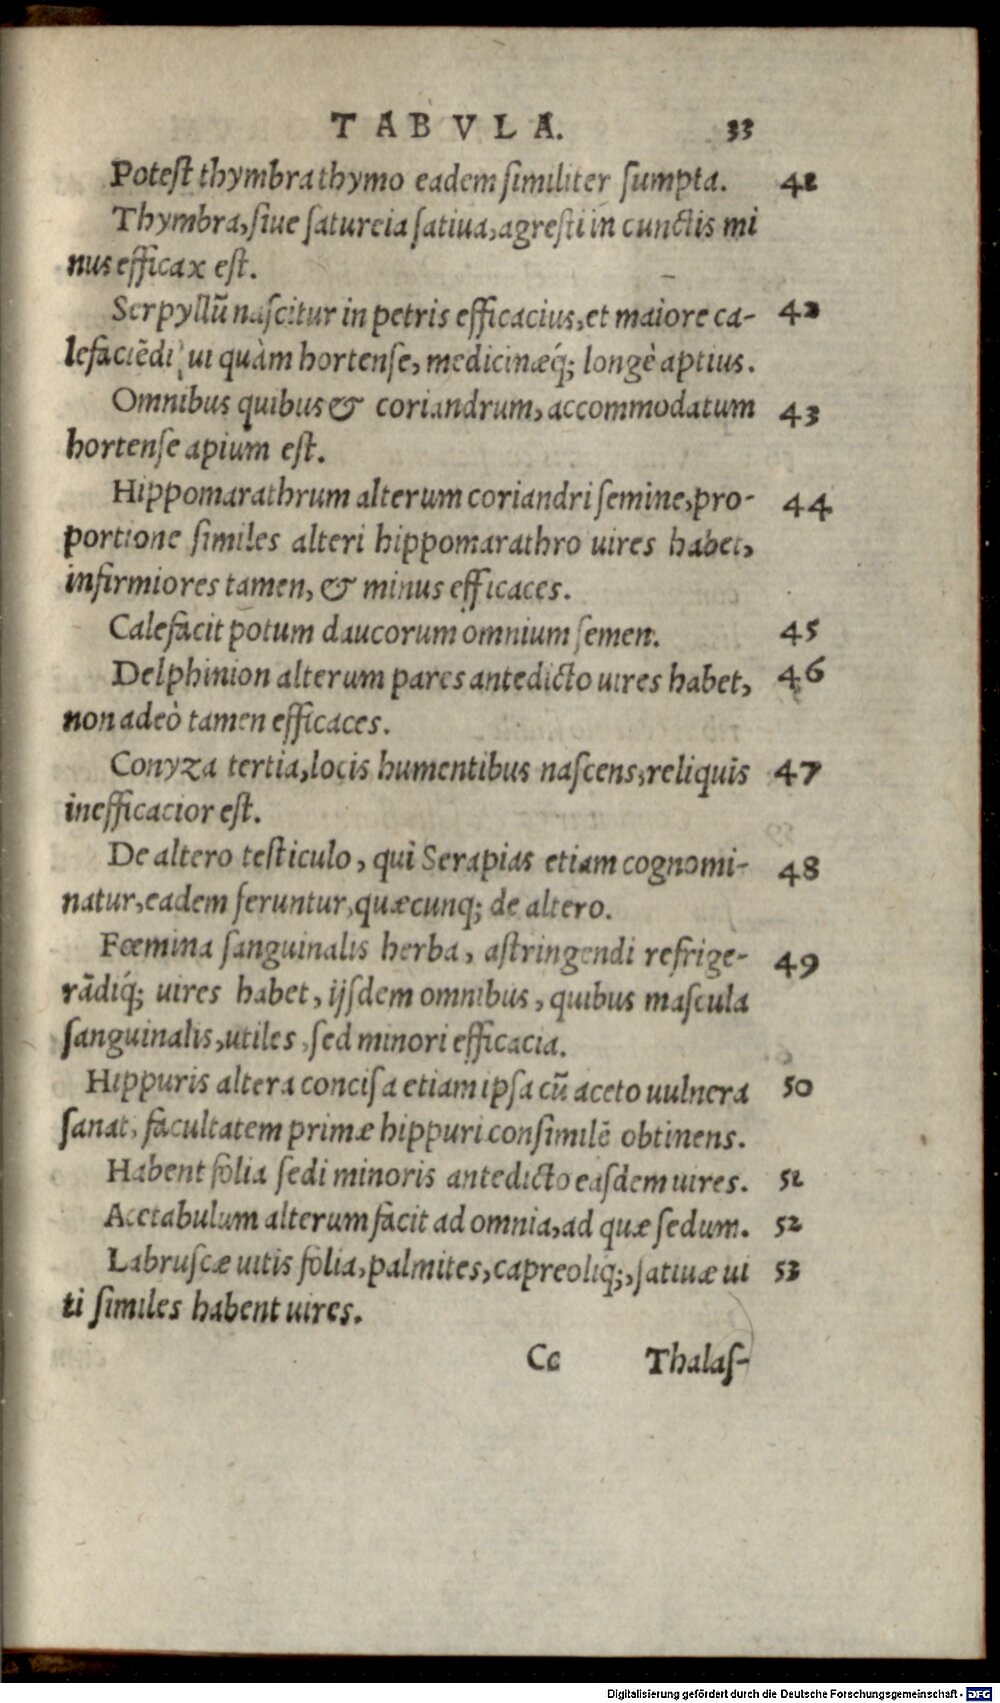 TABVLA. 33
Potest thymbra thymo eadem similiter sumpta. 41
Thymbra, siue satureia satiua, agresti in cunctis mi
nus efficax est.
Serpyllũ nascitur in petris efficacius, et maiore ca- 42
lefaciẽdi ui quàm hortense, medicinæq́; longè aptius.
Omnibus quibus & coriandrum, accommodatum 43
hortense apium est.
Hippomarathrum alterum coriandri semine, pro- 44
portione similes alteri hippomarathro uires habet,
infirmiores tamen, & minus efficaces.
Calefacit potum daucorum omnium semen. 45
Delphinion alterum pares antedicto uires habet, 46
non adeò tamen efficaces.
Conyza tertia, locis humentibus nascens, reliquis 47
inefficacior est.
De altero testiculo, qui Serapias etiam cognomi- 48
natur, eadem feruntur, quæcunq; de altero.
Fœmina sanguinalis herba, astringendi refrige- 49
rãdiq́; uires habet, ijsdem omnibus, quibus mascula
sanguinalis, utiles, sed minori efficacia.
Hippuris altera concisa etiam ipsa cũ aceto uulnera 50
sanat, facultatem primæ hippuri consimilẽ obtinens.
Habent folia sedi minoris antedicto easdem uires. 51
Acetabulum alterum facit ad omnia, ad quæ sedum. 52
Labruscæ uitis folia, palmites, capreoliq́;, satiuæ ui 53
ti similes habent uires.
Cc Thalas-
Digitalisierung gefördert durch die Deutsche Forschungsgemeinschaft - DFG